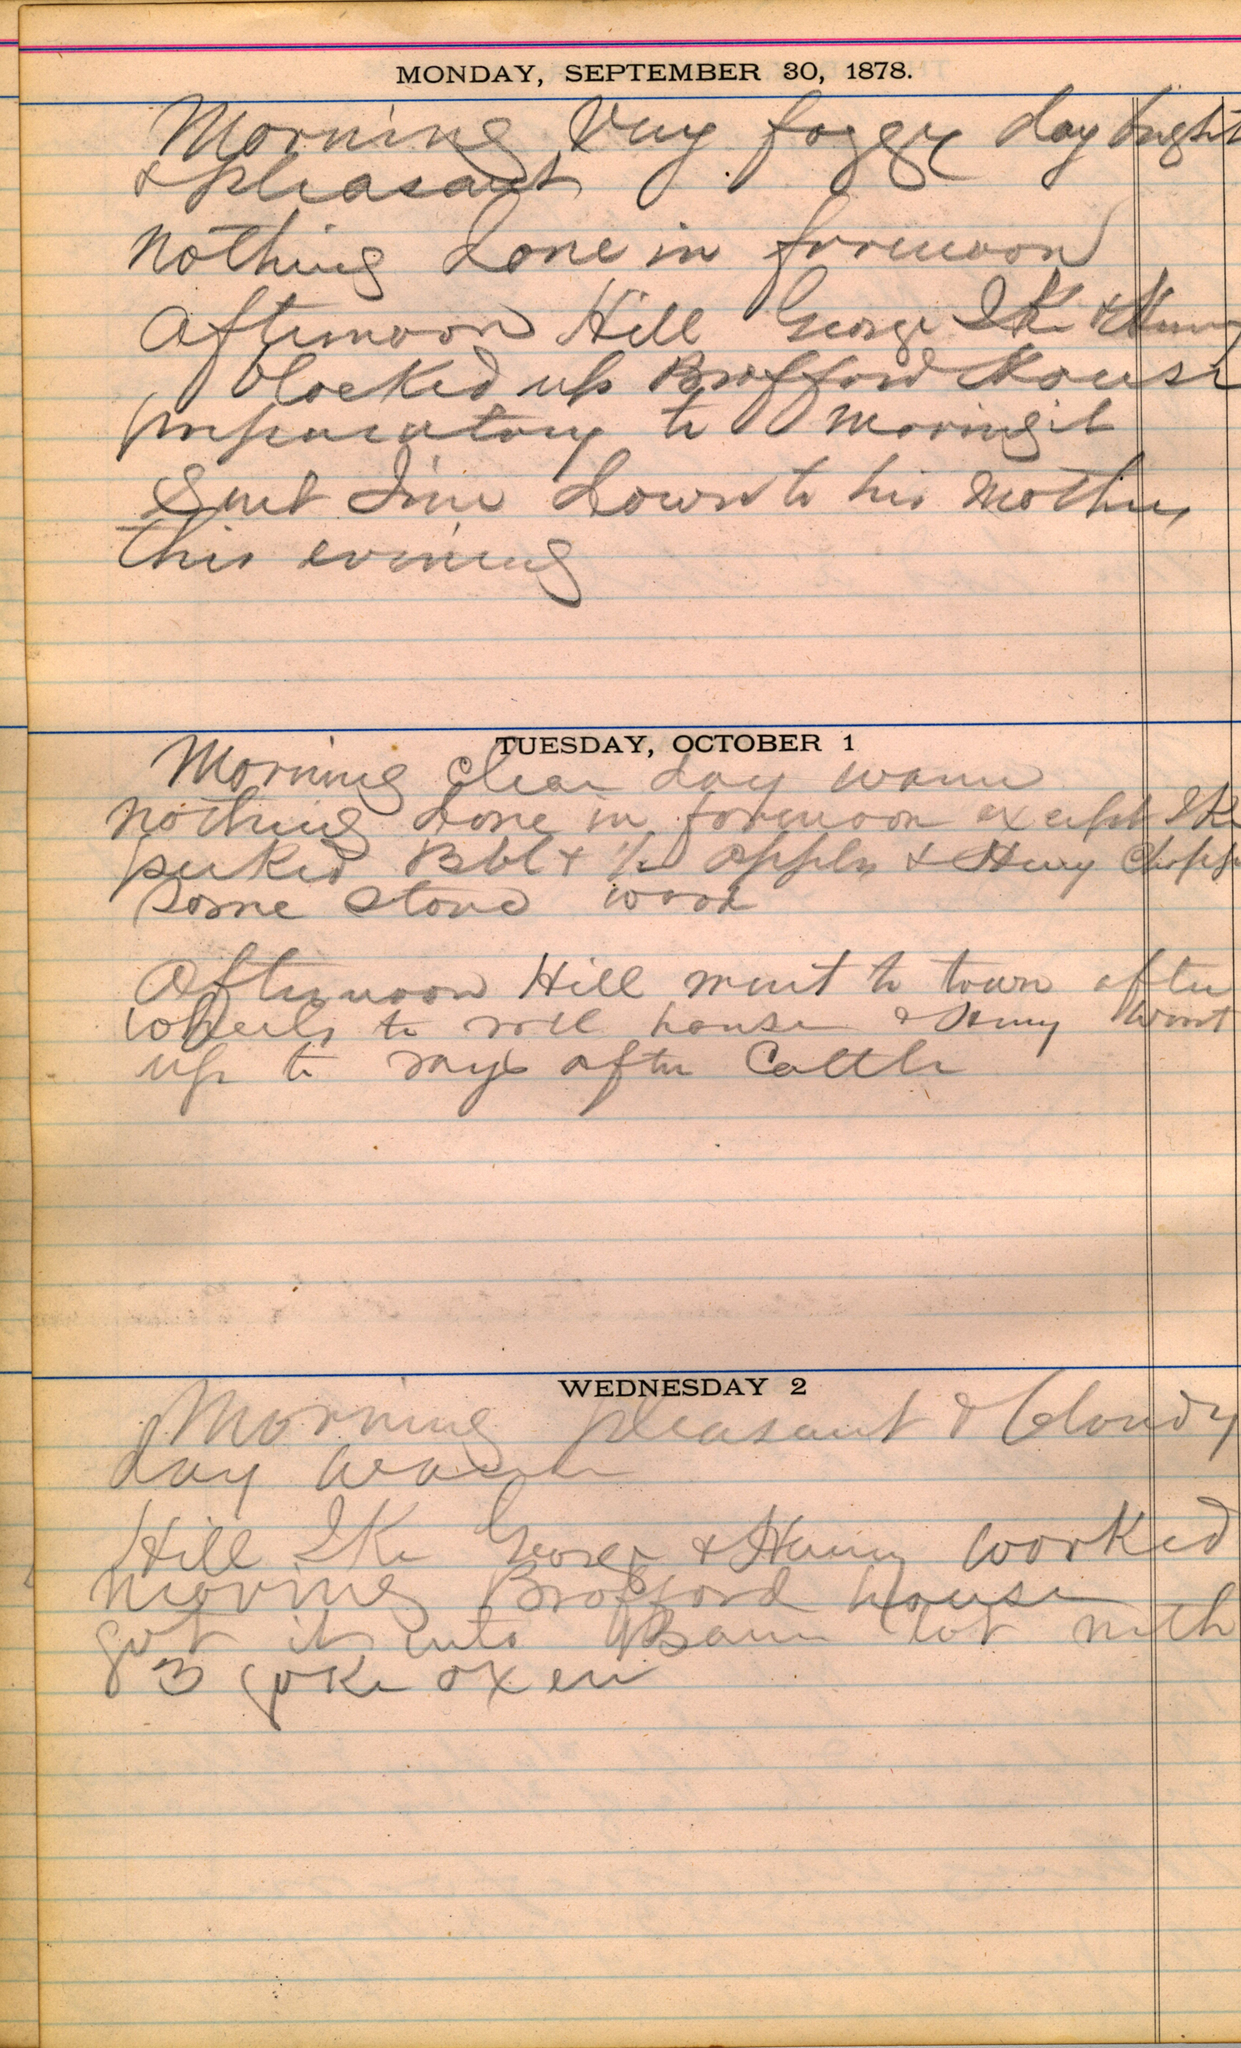 MONDAY, SEPTEMBER 30, 1878.
Morning Very foggy day bright
& pleasant
Nothing done in forenoon
Afternoon Hill George Ike & Henry
blocked up Brofford House
preparatory to moving it
Sent Jim down to his Mothers
this evining
TUESDAY, OCTOBER 1
Morning clear day warm
nothing done in forenoon except Ike
picked Bbl & 1/2 apples & Henry Chopp
some stove wood
Afternoon Hill went to town after
wheels to roll house & Henry went
up to after Cattle
WEDNESDAY 2
Morning pleasant & Cloudy
day warm
Hill Ike George & Henry worked
moving Brofford house
got it into Barn lot with
3 yoke oxen